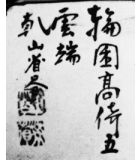 輪囷高倚五
雲端
乾山省